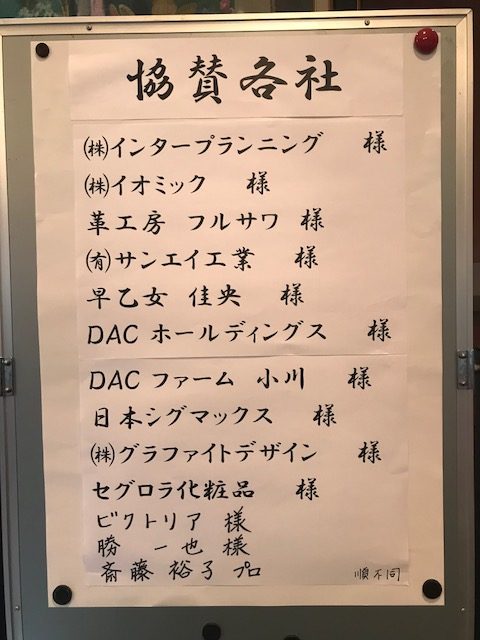 協賛各社
㈱インタープランニング 様
㈱イオミック 様
革工房 フルサワ 様
㈲サンエイ工業 様
早乙女 佳央 様
DAC ホールディングス 様
DAC ファーム 小川 様
日本シグマックス 様
㈱グラファイトデザイン 様
セグロラ化粧品 様
ビクトリア 様
勝 一也 様
斎藤 裕子 プロ
順不同